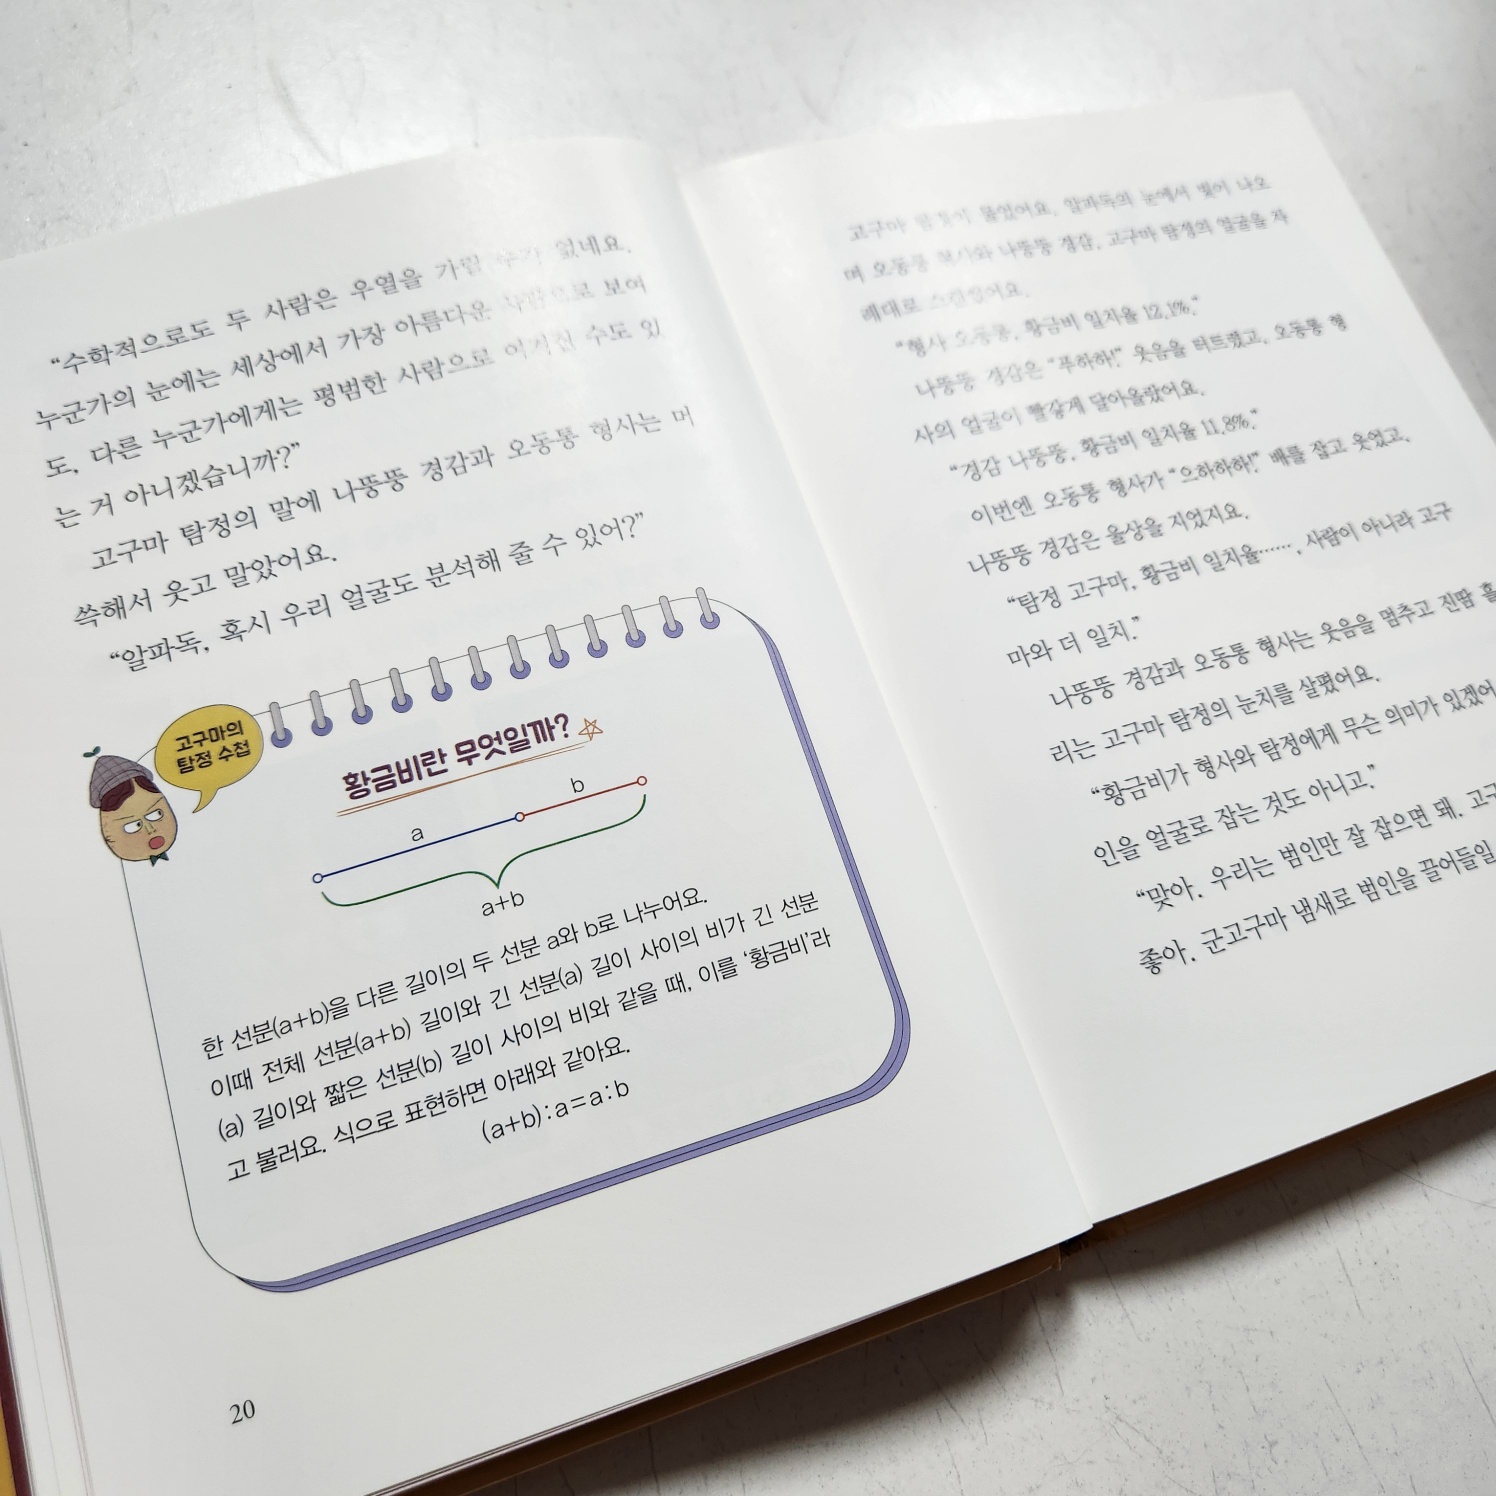 “수학적으로도 두 사람은 우열을 가릴 수가 없네요.
누군가의 눈에는 세상에서 가장 아름다운 사람으로 보여
도, 다른 누군가에게는 평범한 사람으로 여겨질 수도 있
는 거 아니겠습니까?”
고구마 탐정의 말에 나뚱뚱 경감과 오동통 형사는 머
쓱해서 웃고 말았어요.
“알파독, 혹시 우리 얼굴도 분석해 줄 수 있어?”
고구마의
탐정 수첩
황금비란 무엇일까?
a
b
a+b
한 선분(a+b)을 다른 길이의 두 선분 a와 b로 나누어요.
이때 전체 선분(a+b) 길이와 긴 선분(a) 길이 사이의 비가 긴 선분
(a) 길이와 짧은 선분(b) 길이 사이의 비와 같을 때, 이를 ‘황금비’라
고 불러요. 식으로 표현하면 아래와 같아요.
(a+b):a=a:b
20
고구마 물었어요. 알파독의 눈에서 빛이 나오
며 오동통 형사와 나뚱뚱 경감, 고구마 탐정의 얼굴을 차
례대로 스캔했어요.
“형사 오동통, 황금비 일치율 12.1%.”
나뚱뚱 경감은 “푸하하!” 웃음을 터트렸고, 오동통 형
사의 얼굴이 빨갛게 달아올랐어요.
“경감 나뚱뚱, 황금비 일치율 11.8%.”
이번엔 오동통 형사가 “으하하하!” 배를 잡고 웃었고,
나뚱뚱 경감은 울상을 지었지요.
“탐정 고구마, 황금비 일치율……, 사람이 아니라 고구
마와 더 일치.”
나뚱뚱 경감과 오동통 형사는 웃음을 멈추고 진땀 흘
리는 고구마 탐정의 눈치를 살폈어요.
“황금비가 형사와 탐정에게 무슨 의미가 있겠어
인을 얼굴로 잡는 것도 아니고.”
“맞아. 우리는 범인만 잘 잡으면 돼. 고구
좋아. 군고구마 냄새로 범인을 끌어들일